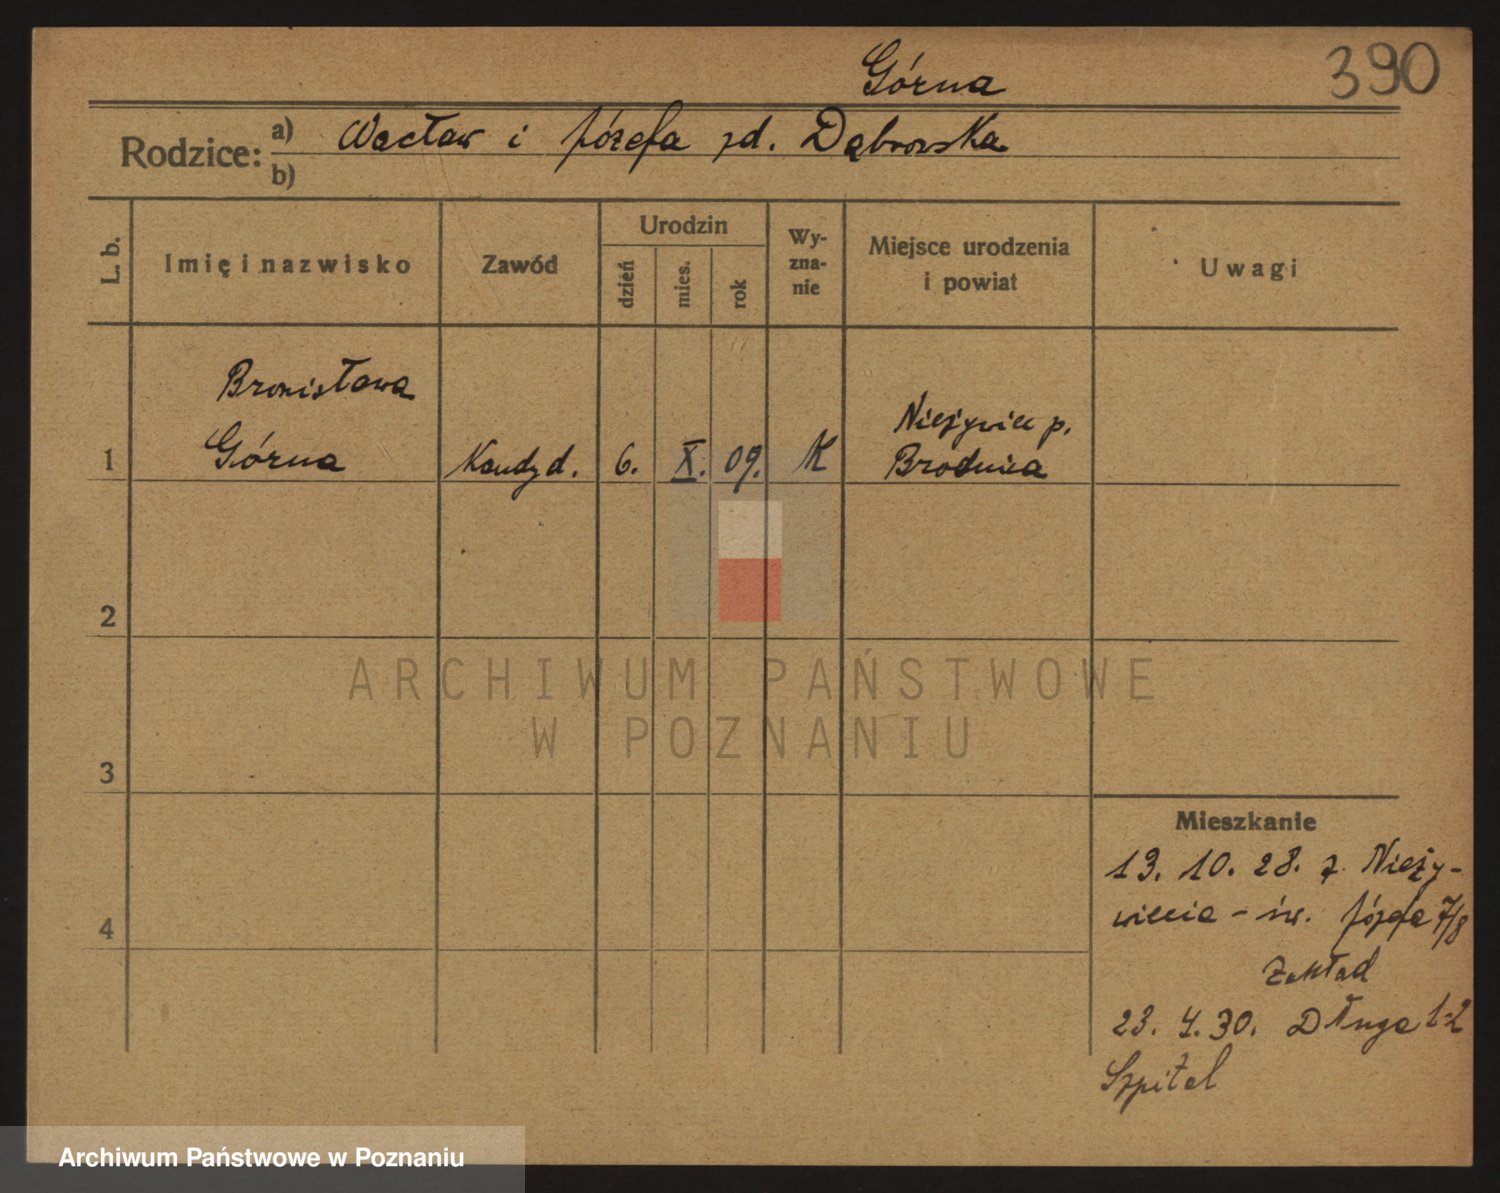 Górna
390
Rodzice: a) Wacław i Józefa zd. Dąbrowska
b)
L. b.
Imię i nazwisko
Zawód
Urodzin
dzień
mies.
rok
Wy-
zna-
nie
Miejsce urodzenia
i powiat
Uwagi
Bronisława
1 Górna Kandyd. 6. X. 09. K Nieżywięć p.
Brodnica
2
3
4
Mieszkanie
13. 10. 28. z Nieży-
więcia - św. Józefa 7/8
Zakład
23. 4. 30. Długa 1-2
Szpital
ARCHIWUM PAŃSTWOWE
W POZNANIU
Archiwum Państwowe w Poznaniu